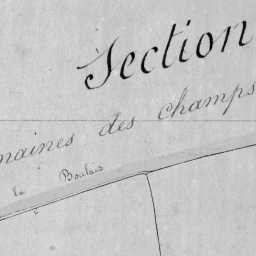 Section
maines des champs
la Boulais